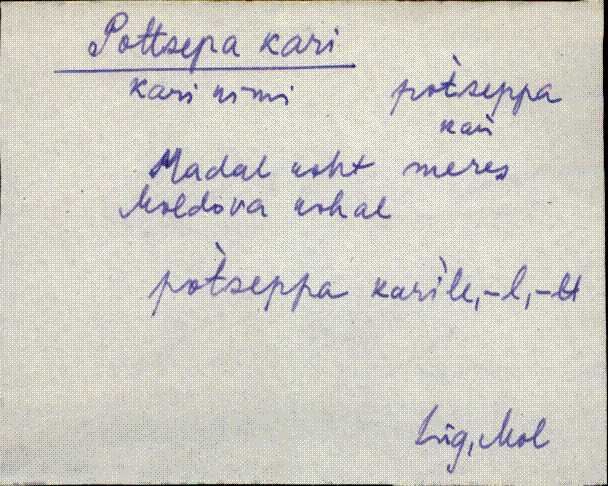 Pottsepa kari
kari nimi pòtseppa
kari
Madal koht meres
Moldova kohal
pòtseppa karìle, -l, -lt
Lüg, Mol